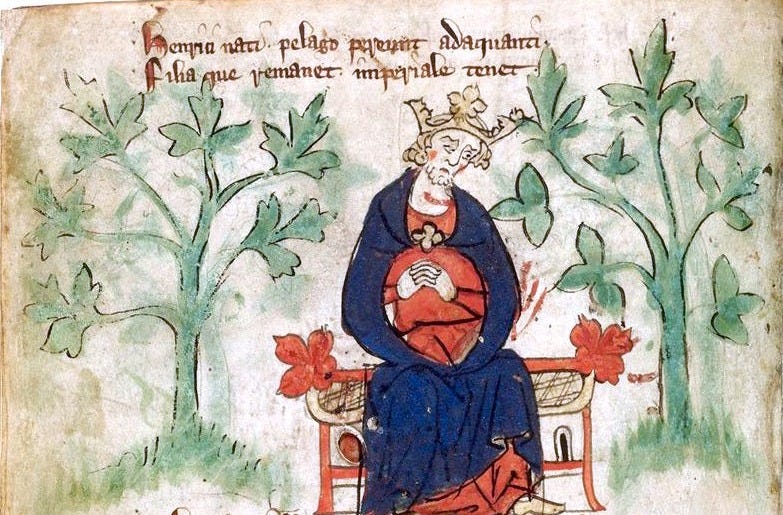 Henrici nati pelago pereunt adaquanti
Filia que remanet imperiale tenet